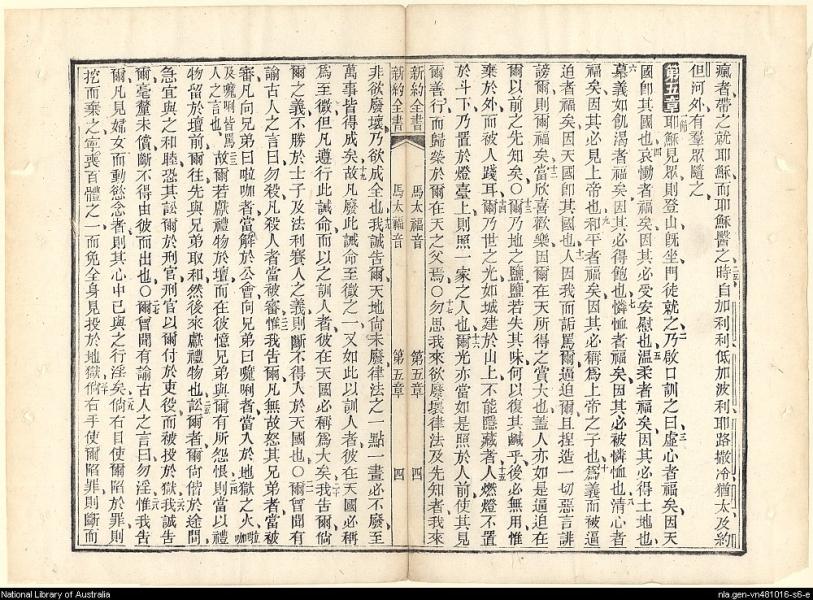 瘋者帶之就耶穌而耶穌醫之時自加利利低加波利耶路撒冷猶太及約
但河外有羣眾隨之
第五章 耶穌見眾則登山旣坐門徒就之乃啟口訓之曰虛心者福矣因天
國卽其國也哀慟者福矣因其必受安慰也溫柔者福矣因其必得土地也
慕義如飢渴者福矣因其必得飽也憐恤者福矣因其必被憐恤也清心者
福矣因其必見上帝也和平者福矣因其必稱爲上帝之子也爲義而被逼
迫者福矣因天國卽其國也人因我而詬罵爾逼迫爾且捏造一切惡言誹
謗爾則爾福矣當欣喜歡樂因爾在天所得之賞大也蓋人亦如是逼迫在
爾以前之先知矣〇爾乃地之鹽鹽若失其味何以復其鹹乎後必無用惟
棄於外而被人踐耳爾乃世之光如城建於山上不能隱藏者人燃燈不置
於斗下乃置於燈臺上則照一家之人也爾光亦當如是照於人前使其見
爾善行而歸榮於爾在天之父焉〇勿思我來欲廢壞律法及先知者我來
新約全書 馬太福音 第五章 四
新約全書 馬太福音 第五章 四
非欲廢壞乃欲成全也我誠告爾天地尙未廢律法之一點一畫必不廢至
萬事皆得成矣故凡廢此誡命至微之一又如此以訓人者彼在天國必稱
爲至微但凡遵行此誡命而以之訓人者彼在天國必稱爲大矣我告爾倘
爾之義不勝於士子及法利賽人之義則斷不得入於天國也〇爾曾聞有
諭古人之言曰勿殺凡殺人者當被審惟我告爾凡無故怒其兄弟者當被
審凡向兄弟曰啦咖者當解於公會向兄弟曰嚂唎者當入於地獄之火啦咖
及嚂唎皆罵人之言也故爾若獻禮物於壇而在彼憶兄弟與爾有所怨恨則當以禮
物留於壇前爾往先與兄弟取和然後來獻禮物也訟爾者爾尙偕於途間
急宜與之和睦恐其訟爾於刑官刑官以爾付於吏役而被投於獄我誠告
爾毫釐未償斷不得由彼而出也〇爾曾聞有諭古人之言曰勿淫惟我告
爾凡見婦女而動慾念者則其心中已與之行淫矣倘右目使爾陷於罪則
挖而棄之寧喪百體之一而免全身見投於地獄倘右手使爾陷罪則斷而
National Library of Australia
nla.gen-vn481016-s6-e